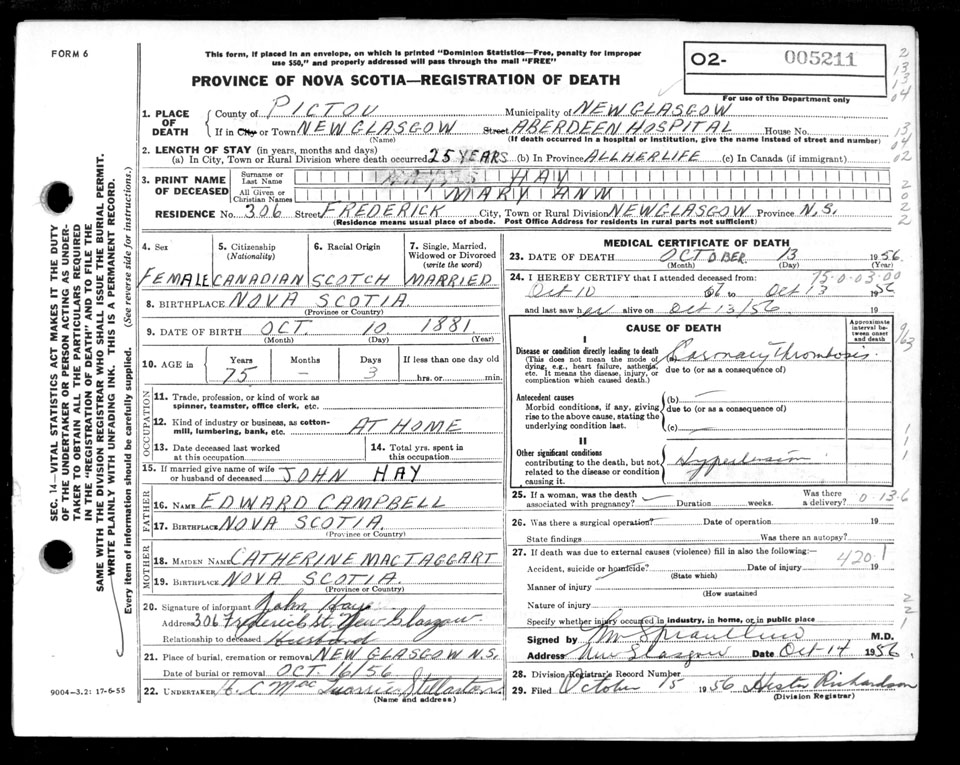 FORM 6
This form, if placed in an envelope, on which is printed "Dominion Statistics—Free, penalty for improper
use $50," and properly addressed will pass through the mail "FREE"
PROVINCE OF NOVA SCOTIA—REGISTRATION OF DEATH
02- 005211
For use of the Department only
1. PLACE OF DEATH
County of PICTOU Municipality of NEW GLASGOW
If in City or Town NEW GLASGOW Street ABERDEEN HOSPITAL House No.
(Name) (If death occurred in a hospital or institution, give the name instead of street and number)
2. LENGTH OF STAY (in years, months and days)
(a) In City, Town or Rural Division where death occurred 25 YEARS (b) In Province ALL HER LIFE (c) In Canada (if immigrant)
3. PRINT NAME OF DECEASED
Surname or Last Name HAY
All Given or Christian Names MARY ANN
RESIDENCE No. 306 Street FREDERICK City, Town or Rural Division NEW GLASGOW Province N.S.
(Residence means usual place of abode. Post Office Address for residents in rural parts not sufficient)
4. Sex FEMALE
5. Citizenship (Nationality) CANADIAN
6. Racial Origin SCOTCH
7. Single, Married, Widowed or Divorced (write the word) MARRIED
8. BIRTHPLACE NOVA SCOTIA
(Province or Country)
9. DATE OF BIRTH OCT. 10 1881
(Month) (Day) (Year)
10. AGE in Years 75 Months — Days 3 If less than one day old hrs. or min.
OCCUPATION
11. Trade, profession, or kind of work as spinner, teamster, office clerk, etc.
12. Kind of industry or business, as cotton-mill, lumbering, bank, etc. AT HOME
13. Date deceased last worked at this occupation
14. Total yrs. spent in this occupation
15. If married give name of wife or husband of deceased JOHN HAY
FATHER
16. NAME EDWARD CAMPBELL
17. BIRTHPLACE NOVA SCOTIA.
(Province or Country)
MOTHER
18. MAIDEN NAME CATHERINE MACTAGGART
19. BIRTHPLACE NOVA SCOTIA.
(Province or Country)
20. Signature of informant John Hay
Address 306 Frederick St. New Glasgow
Relationship to deceased Husband
21. Place of burial, cremation or removal NEW GLASGOW N.S.
Date of burial or removal OCT. 16/56
22. UNDERTAKER H. C. Mac Stellarton
(Name and address)
MEDICAL CERTIFICATE OF DEATH
23. DATE OF DEATH OCTOBER 13 1956
(Month) (Day) (Year)
75-0-03-00
24. I HEREBY CERTIFY that I attended deceased from:
Oct 10 56 to Oct 13 1956
and last saw her alive on Oct 13/56 19
CAUSE OF DEATH
Approximate interval between onset and death
I
Disease or condition directly leading to death
(This does not mean the mode of dying, e.g., heart failure, asthenia, etc. It means the disease, injury, or complication which caused death.)
(a) Coronary Thrombosis.
due to (or as a consequence of)
Antecedent causes
Morbid conditions, if any, giving rise to the above cause, stating the underlying condition last.
(b) —
due to (or as a consequence of)
(c) —
II
Other significant conditions
contributing to the death, but not related to the disease or condition causing it.
Hypertension
25. If a woman, was the death associated with pregnancy? Duration weeks. Was there a delivery?
0-13-6
26. Was there a surgical operation? Date of operation 19
State findings Was there an autopsy?
27. If death was due to external causes (violence) fill in also the following:—
420.1
Accident, suicide or homicide? Date of injury 19
(State which)
Manner of injury
(How sustained
Nature of injury
Specify whether injury occurred in industry, in home, or in public place
Signed by M.D.
Address New Glasgow Date Oct-14 1956.
28. Division Registrar's Record Number
29. Filed October 15 1956 Hester Richardson
(Division Registrar)
SEC. 14—VITAL STATISTICS ACT MAKES IT THE DUTY
OF THE UNDERTAKER OR PERSON ACTING AS UNDER-
TAKER TO OBTAIN ALL THE PARTICULARS REQUIRED
IN THE "REGISTRATION OF DEATH" AND TO FILE THE
SAME WITH THE DIVISION REGISTRAR WHO SHALL ISSUE THE BURIAL PERMIT.
WRITE PLAINLY WITH UNFADING INK. THIS IS A PERMANENT RECORD.
Every item of information should be carefully supplied. (See reverse side for instructions.)
9004—3.2: 17-6-55